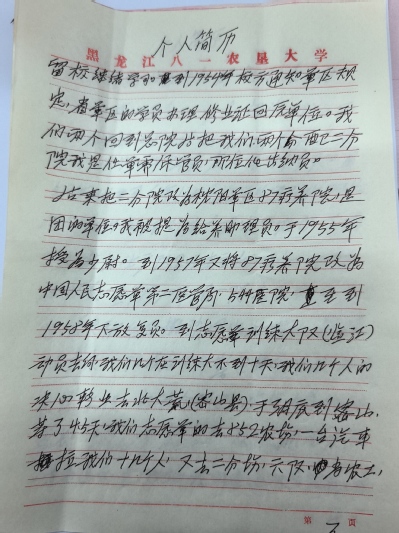 个人简历
黑龙江八一农垦大学
留校继续学习 到1954年校方通知军区规
定，省军区的学员办理修业证回原单位。我
们两个回到总院后把我们两个分配二分
院我是任军需保管员，那位任
后来把二分院改为沈阳军区87疗养院，是
团的单位。我被提为给养助理员。于1955年
授为少尉。到1957年又将87疗养院改为
中国人民志愿军第二 管局 医院 直至到
1958年下放复员。到志愿军训练大队（临江）
动员去 我们几个在训练大不到十天，我们几个人的
决心 转业去北大荒（密山县） 于 月底到密山，
等了45天，我们志愿军的去852农场，一台汽车
拉我们十几个人，又去二分场，六队， 农工，
第 页
2